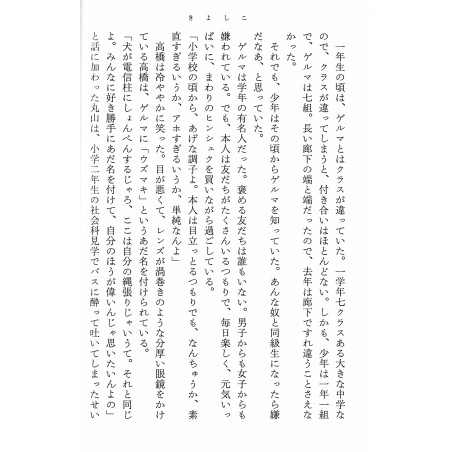 きよしこ
一年生の頃は、ゲルマとはクラスが違っていた。一学年七クラスある大きな中学な
ので、クラスが違ってしまうと、付き合いはほとんどない。しかも、少年は一年一組
で、ゲルマは七組。長い廊下の端と端だったので、去年は廊下ですれ違うことさえな
かった。
それでも、少年はその頃からゲルマを知っていた。あんな奴と同級生になったら嫌
だなあ、と思っていた。
ゲルマは学年の有名人だった。褒める友だちは誰もいない。男子からも女子からも
嫌われている。でも、本人は友だちがたくさんいるつもりで、毎日楽しく、元気いっ
ぱいに、まわりのヒンシュクを買いながら過ごしている。
「小学校の頃から、あげな調子よ。本人は目立っとるつもりでも、なんちゅうか、素
直すぎるいうか、アホすぎるいうか、単純なんよ」
高橋は冷ややかに笑った。目が悪くて、レンズが渦巻きのような分厚い眼鏡をかけ
ている高橋は、ゲルマに「ウズマキ」というあだ名を付けられている。
「犬が電信柱にしょんべんするじゃろ、ここは自分の縄張りじゃいうて。それと同じ
よ。みんなに好き勝手にあだ名を付けて、自分のほうが偉いんじゃ思いたいんよの」
と話に加わった丸山は、小学二年生の社会科見学でバスに酔って吐いてしまったせい